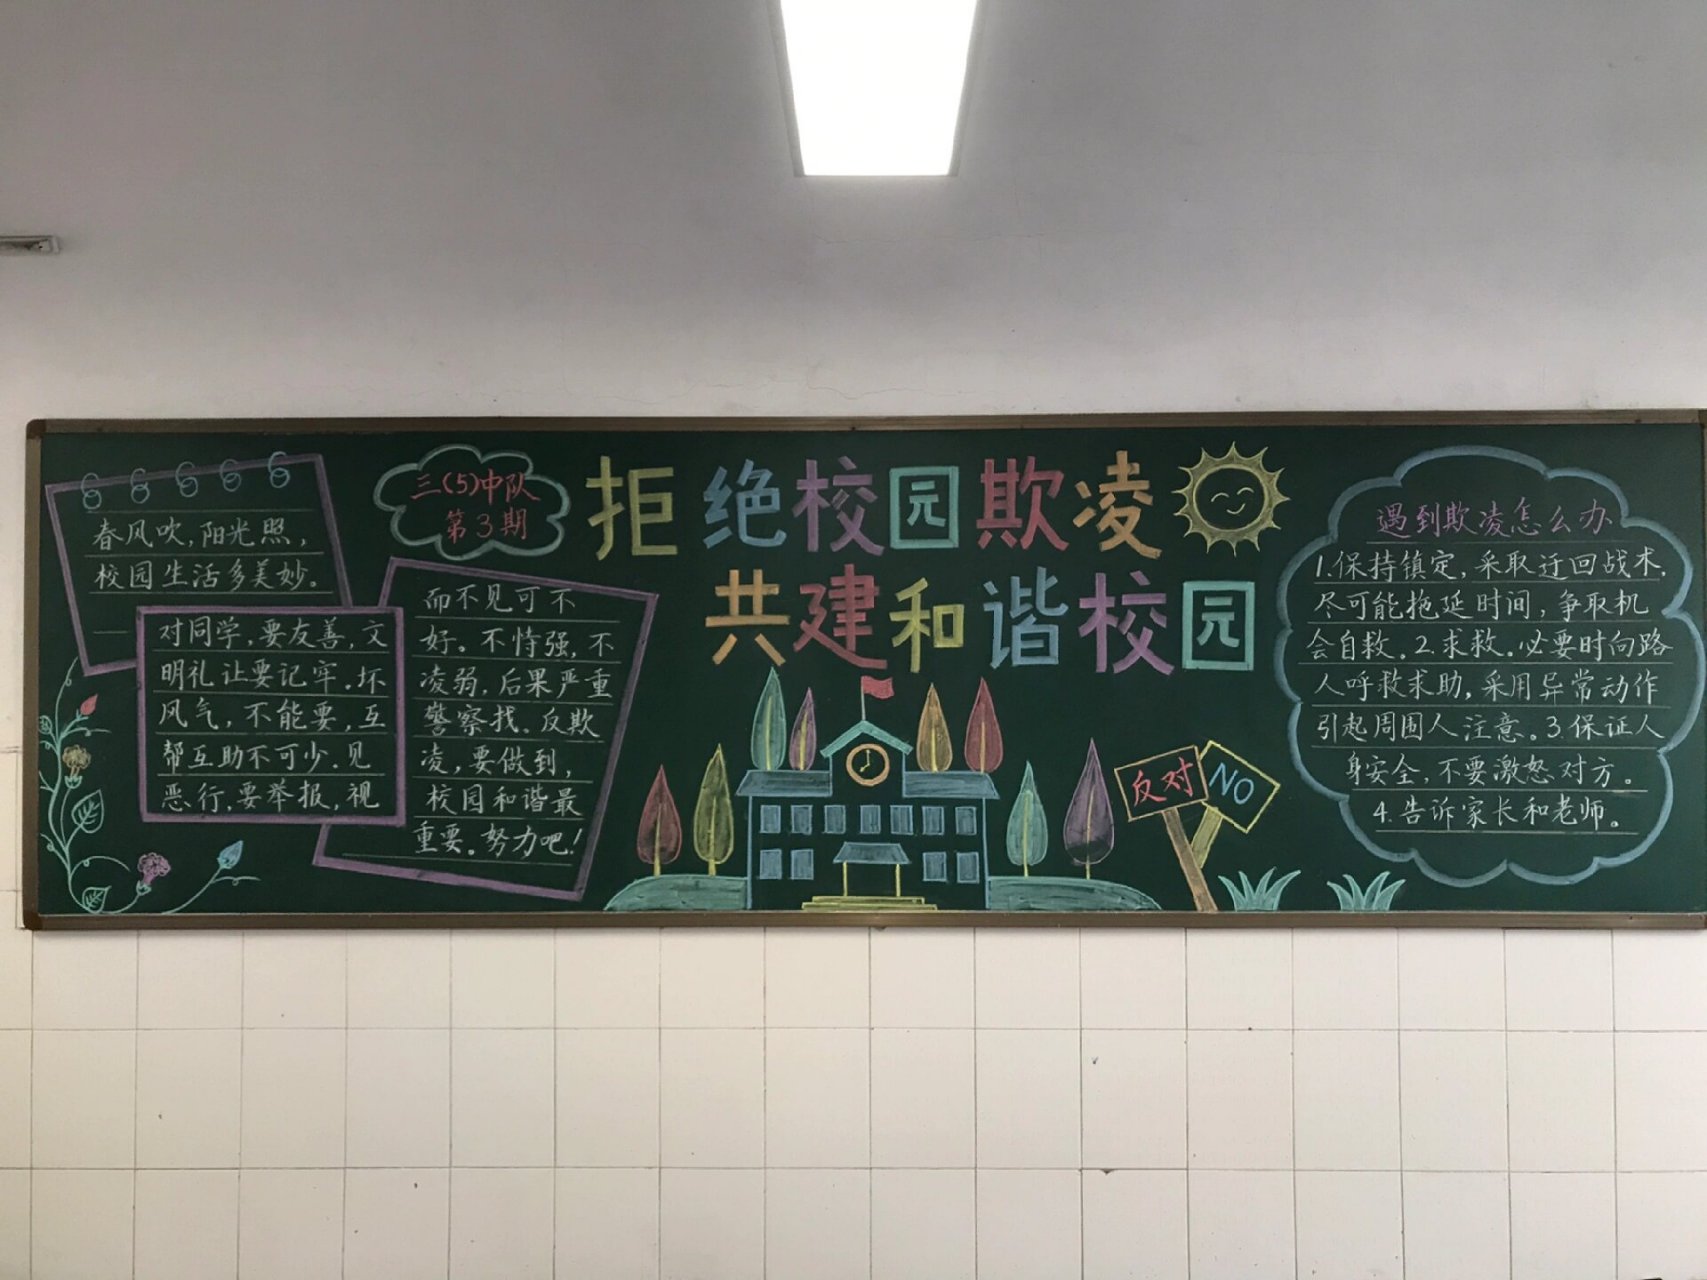 春风吹,阳光照,
校园生活多美妙。
对同学,要友善,文
明礼让要记牢.坏
风气,不能要,互
帮互助不可少.见
恶行,要举报,视
三(5)中队
第3期
而不见可不
好。不恃强,不
凌弱,后果严重
警察找。反欺
凌,要做到,
校园和谐最
重要。努力吧!
拒绝校园欺凌
共建和谐校园
反对
NO
遇到欺凌怎么办
1.保持镇定,采取迂回战术,
尽可能拖延时间,争取机
会自救。2.求救。必要时向路
人呼救求助,采用异常动作
引起周围人注意。3.保证人
身安全,不要激怒对方。
4.告诉家长和老师。